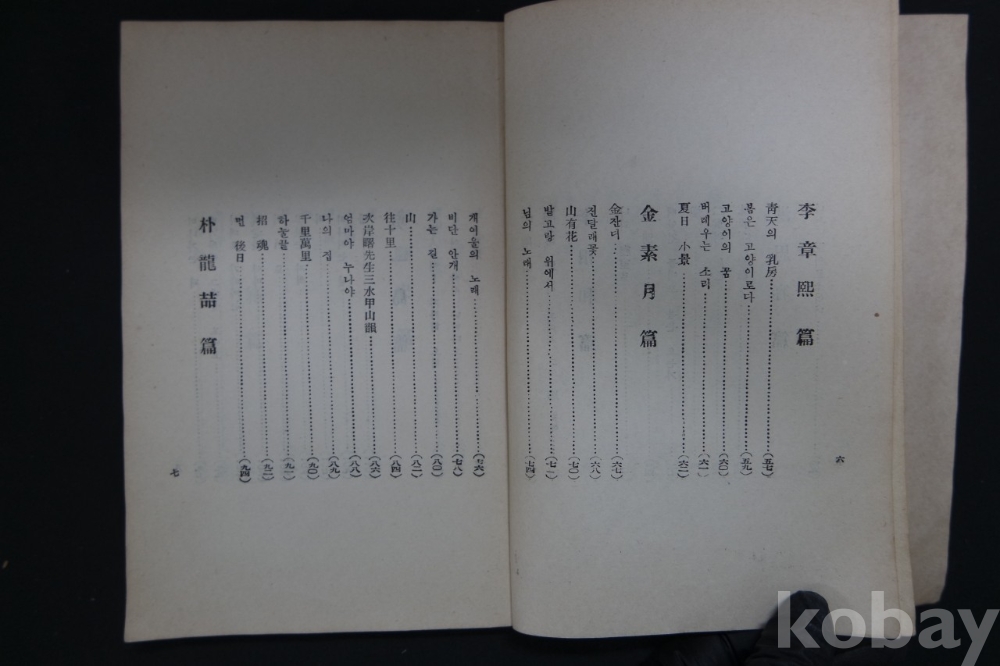 李章熙篇
靑天의 乳房……(五七)
봄은 고양이로다……(五九)
고양이의 꿈……(六〇)
버레우는 소리……(六一)
夏日小景……(六二)
金素月篇
金잔디……(六七)
진달래꽃……(六八)
山有花……(七〇)
밭고랑 위에서……(七一)
님의 노래……(七四)
六
개여울의 노래……(七六)
비단 안개……(七八)
가는 길……(八〇)
山……(八二)
往十里……(八四)
次岸曙先生三水甲山韻……(八六)
엄마야 누나야……(八八)
나의 집……(八九)
千里萬里……(九〇)
하눌끝……(九一)
招魂……(九二)
먼 後日……(九四)
朴龍喆篇
七
kobay